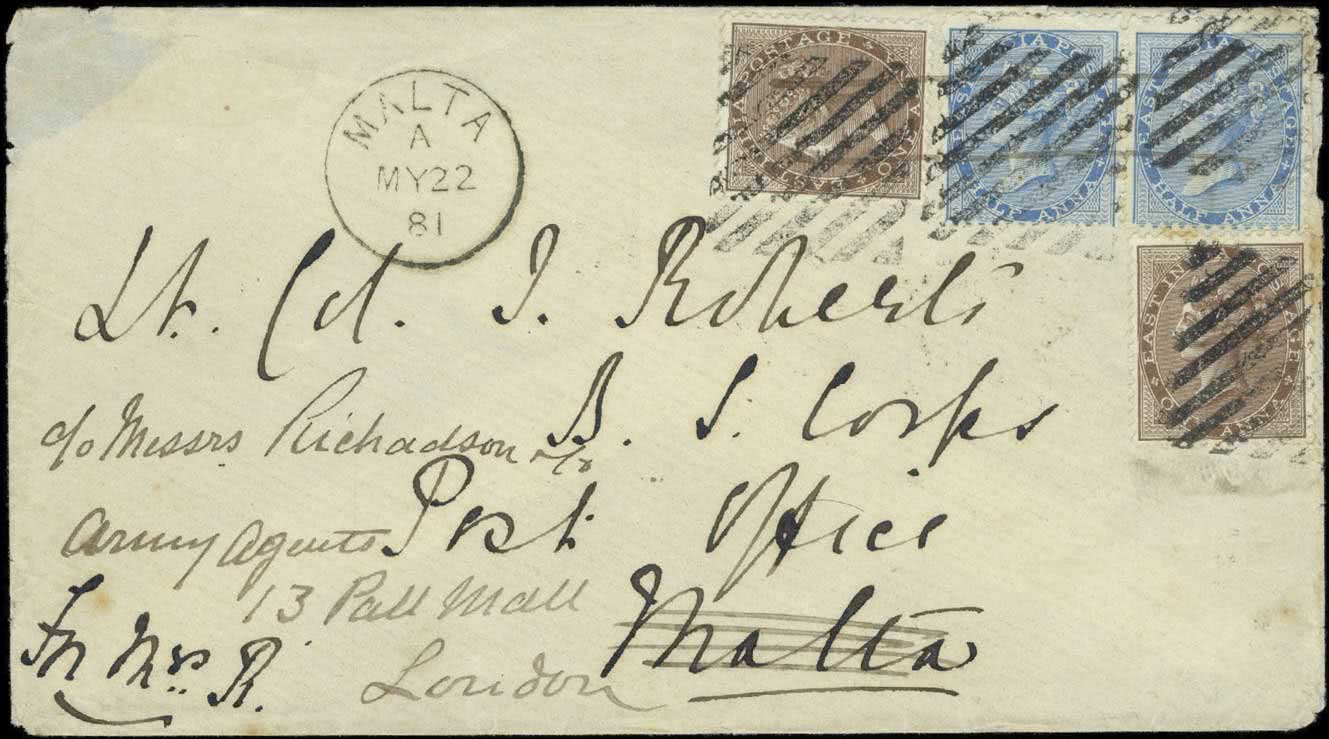 EAST INDIA POSTAGE
ONE ANNA
EAST INDIA POSTAGE
HALF ANNA
EAST INDIA POSTAGE
HALF ANNA
MALTA
A
MY22
81
EAST INDIA POSTAGE
ONE ANNA
Lt. Col. J. Roberts
B. S. Corps
c/o Messrs Richadson
Post Office
Army Agents
13 Pall Mall
Malta
London
Fm Mrs. R.